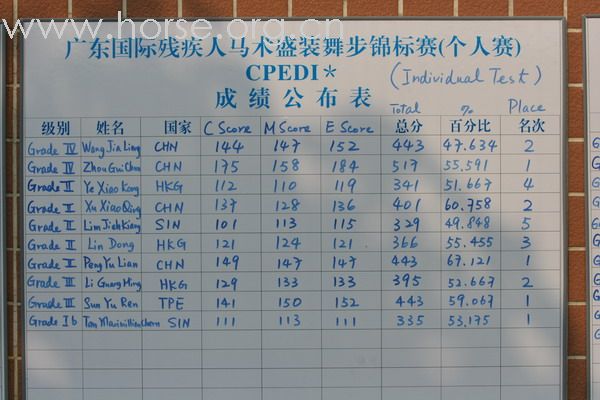 www.horse.org.cn
广东国际残疾人马术盛装舞步锦标赛(个人赛)
CPEDI* (Individual Test)
成绩公布表
Total % Place
级别 姓名 国家 C Score M Score E Score 总分 百分比 名次
Grade IV Wang Jia Ling CHN 144 147 152 443 47.634 2
Grade IV Zhou Gui Chun CHN 175 158 184 517 55.591 1
Grade II Ye Xiao Kang HKG 112 110 119 341 51.667 4
Grade II Xu Xiao Qing CHN 137 128 136 401 60.758 2
Grade II Lim Jieh Kiang SIN 101 113 115 329 49.848 5
Grade II Lin Dong HKG 121 124 121 366 55.455 3
Grade II Peng Yu Lian CHN 149 147 147 443 67.121 1
Grade III Li Guang Ming HKG 129 133 133 395 52.667 2
Grade III Sun Yu Ren TPE 141 150 152 443 59.067 1
Grade Ib Tan Maximillien Chern SIN 111 113 111 335 53.175 1